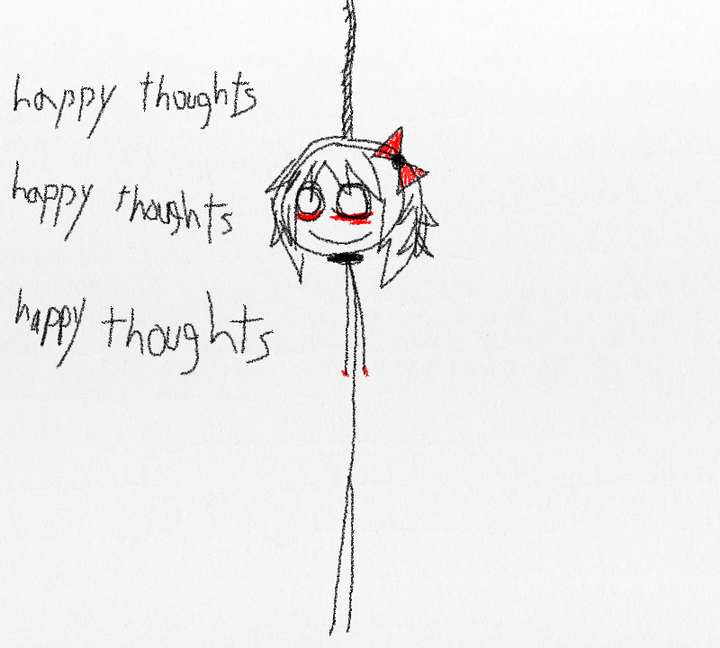 happy thoughts
happy thoughts
happy thoughts